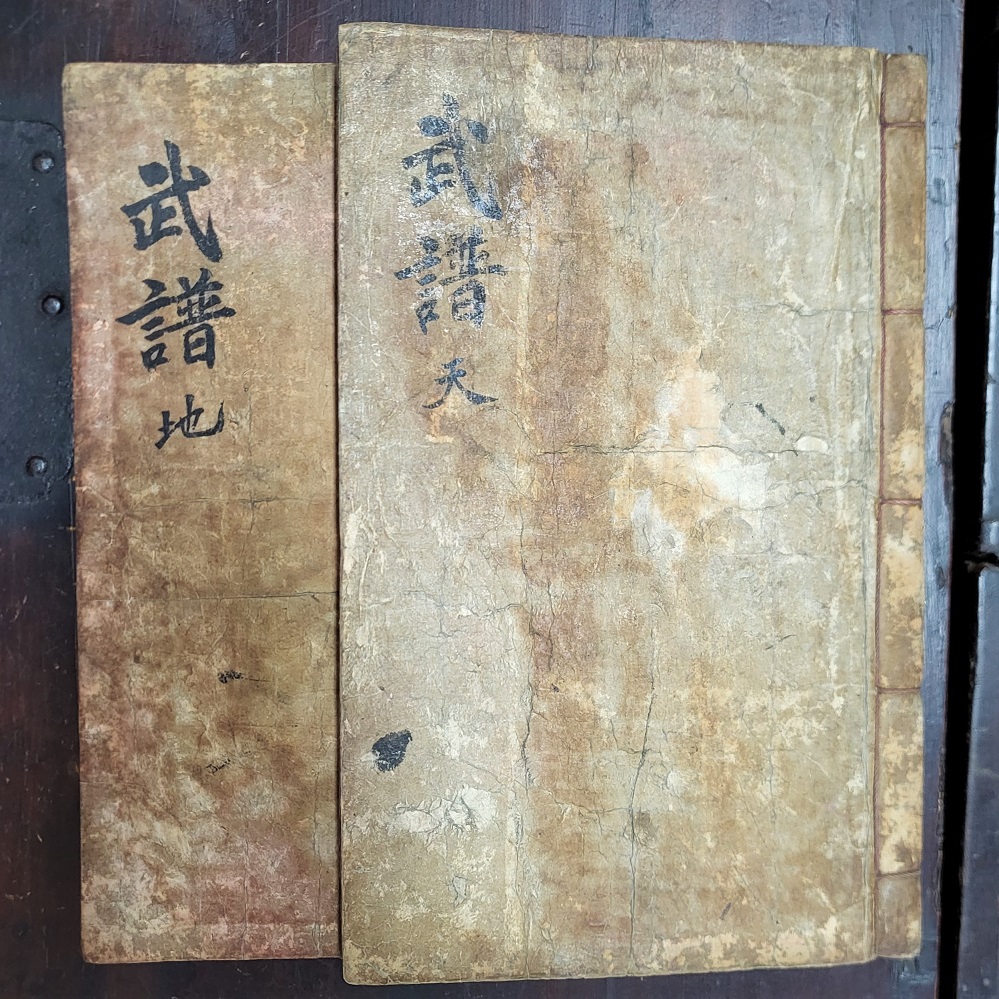 武譜 天
武譜 地